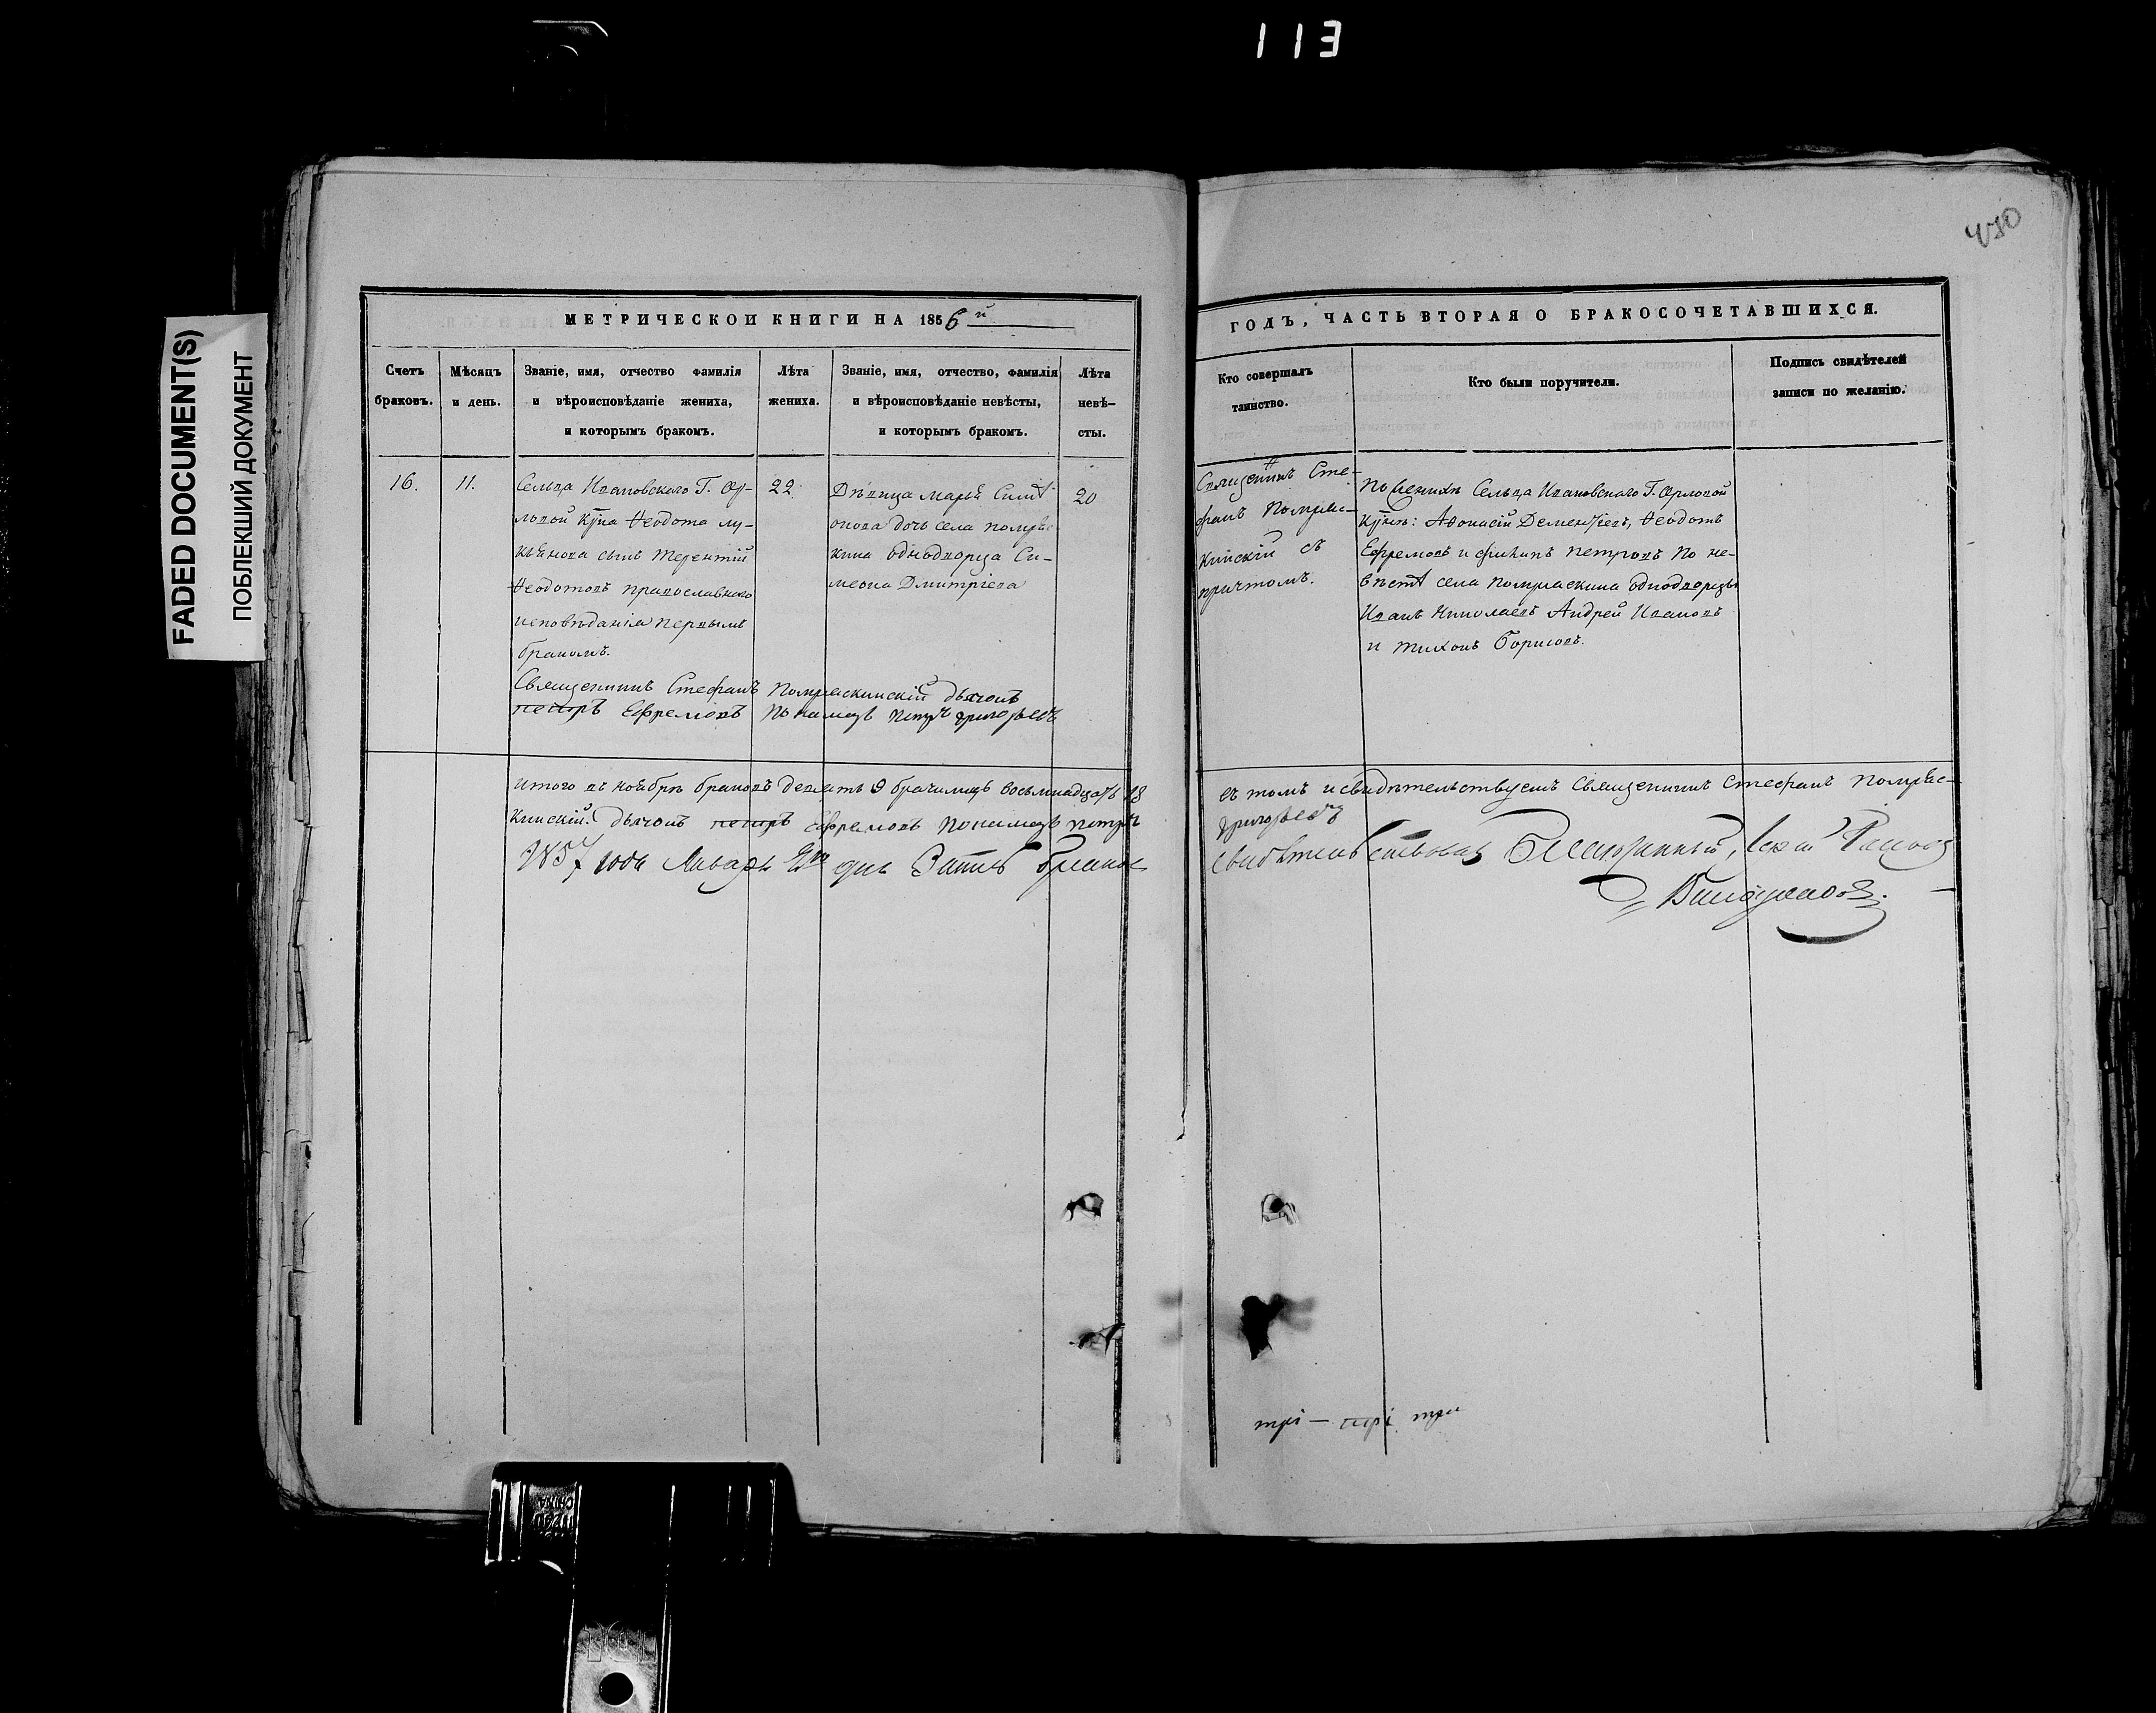 113
430
FADED DOCUMENT(S)
ПОБЛЕКШИЙ ДОКУМЕНТ
МЕТРИЧЕСКОЙ КНИГИ НА 1856й
ГОДЪ, ЧАСТЬ ВТОРАЯ О БРАКОСОЧЕТАВШИХСЯ.
Счетъ
браковъ.
Мѣсяцъ
и день.
Званіе, имя, отчество фамилія
и вѣроисповѣданіе жениха,
и которымъ бракомъ.
Лѣта
жениха.
Званіе, имя, отчество, фамилія
и вѣроисповѣданіе невѣсты,
и которымъ бракомъ.
Лѣта
невѣ-
сты.
Кто совершалъ
таинство.
Кто были поручители.
Подпись свидѣтелей
записи по желанію.
16.
11.
Сельца Ивановскаго Г. Ор-
ловой Кр̃на Ѳеодота Лу-
кьянова сынъ Терентій
Ѳеодотовъ православнаго
исповѣданія первымъ
бракомъ.
22
Дѣвица Марья Симе
онова дочь села Помряс
кина однодворца Си-
меона Дмитріева
20
Священникъ Сте-
фанъ Помряс-
кинскій съ
причтомъ.
По женихѣ Сельца Ивановскаго Г. Орловой
Кр̃не: Аѳонасій Дементіевъ, Ѳеодотъ
Ефремовъ и Филипъ Петровъ по не-
вѣстѣ села Помряскина однодворцы
Иванъ Николаевъ Андрей Ивановъ
и Тихонъ Борисовъ.
Священникъ Стефанъ Помряскинскій дьячокъ
Петръ Ефремовъ Пономарь Петръ Григорьевъ
Итого въ ноябрѣ браковъ девять 9 брачившихъ восьмнадцать 18
въ томъ и свидѣтельствуемъ Священникъ Стефанъ Помряс-
кинскій дьячокъ Петръ Ефремовъ Пономарь Петръ
Григорьевъ
1857 года Января дня
свидѣтельствовалъ Благочинный,
три — три три